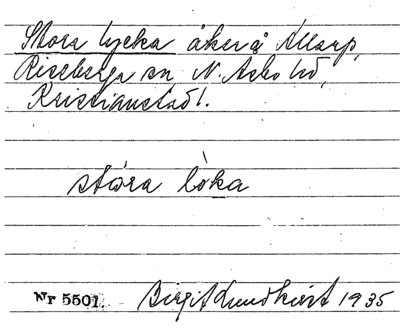 Stora lycka åker å Allarp,
Riseberga sn N. Åsbo hd,
Kristianstad l.
stóra lòka
Nr 5501. Birgit Lundkvist 1935